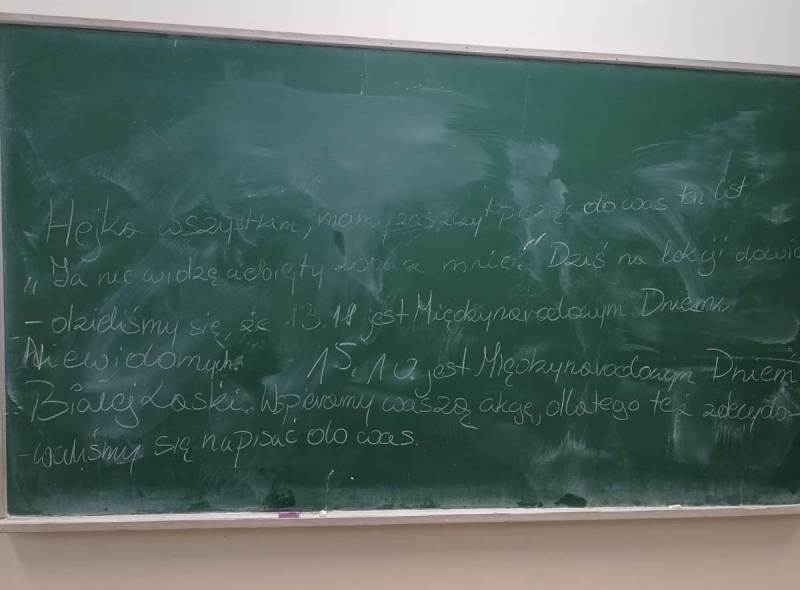 Hejka wszytkim, mamy zaszczyt pisząc do was ten list
„Ja nie widzę ciebie, ty zobacz mnie." Dziś na lekcji dowie
- dzieliśmy się, że 13.11 jest Międzynarodowym Dniem
Niewidomych. 15.10 jest Międzynarodowym Dniem
Białej Laski. Wspieramy waszą akcję, dlatego też zdecydo-
- waliśmy się napisać do was.